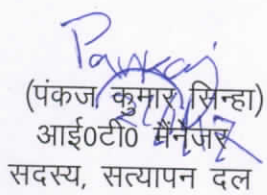 Pankaj
(पंकज कुमार सिन्हा)
आई0टी0 मैनेजर
सदस्य, सत्यापन दल